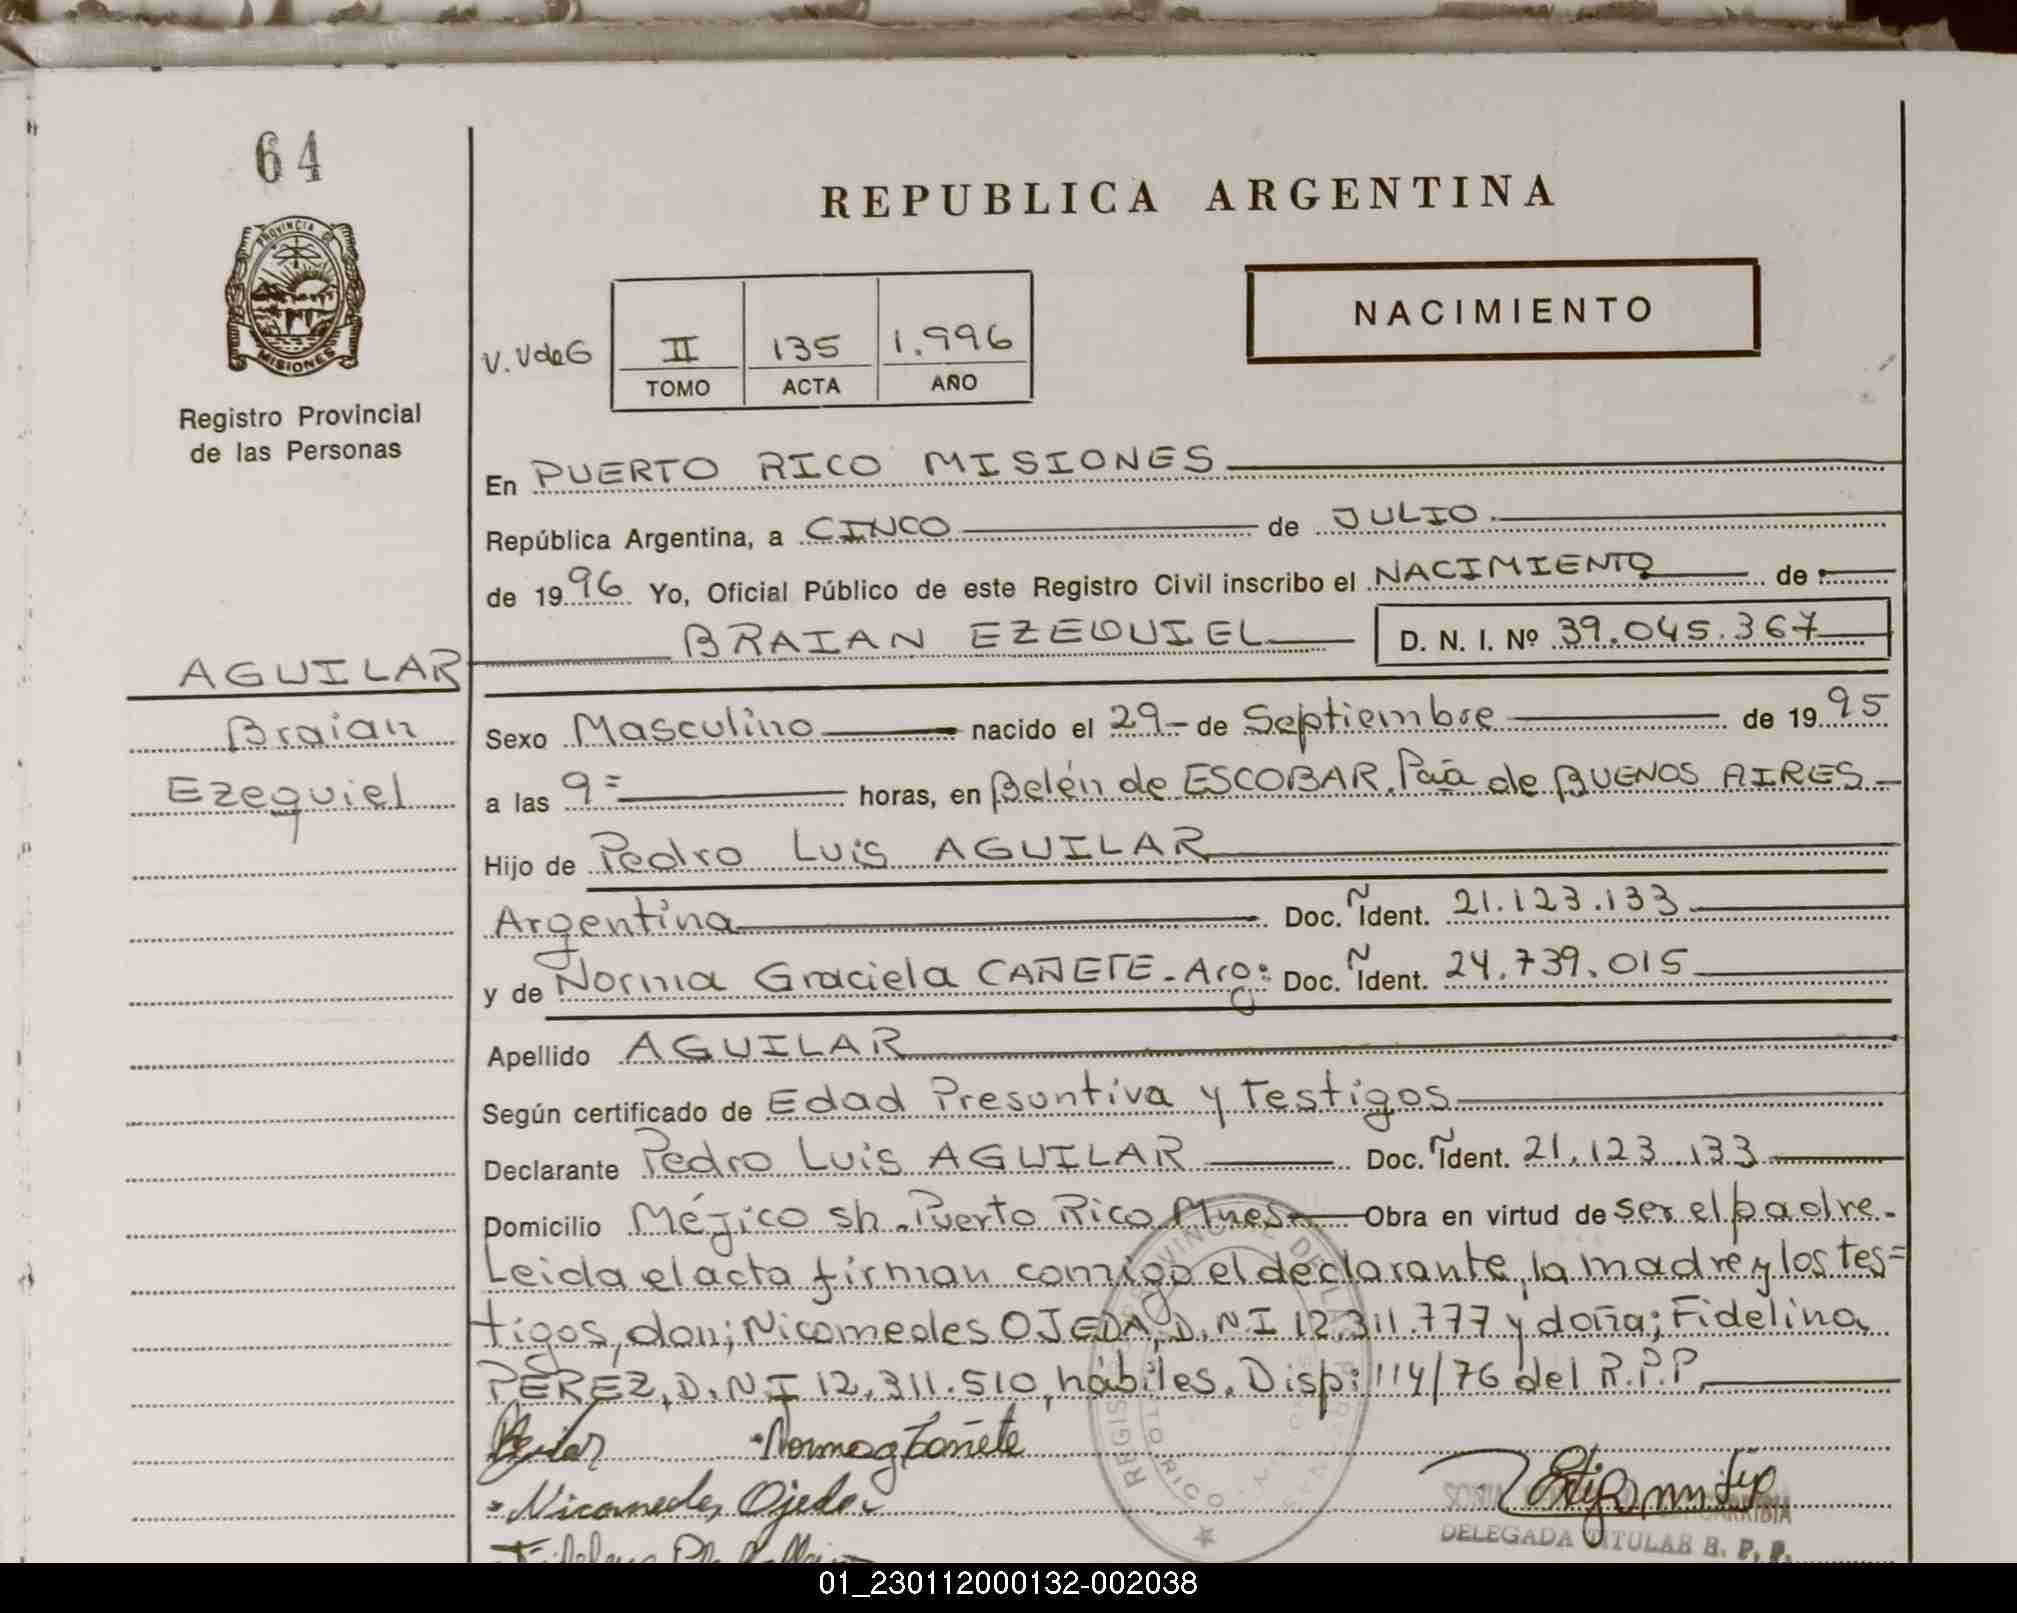 64
REPUBLICA ARGENTINA
PROVINCIA DE
MISIONES
NACIMIENTO
V. VdeG
II 135 1.996
TOMO ACTA AÑO
Registro Provincial
de las Personas
En PUERTO RICO MISIONES
República Argentina, a CINCO de JULIO
de 1996 Yo, Oficial Público de este Registro Civil inscribo el NACIMIENTO de
AGUILAR BRAIAN EZEQUIEL D. N. I. Nº 39.045.367
Braian
Ezequiel
Sexo Masculino nacido el 29- de Septiembre de 1995
a las 9= horas, en Belén de ESCOBAR. Pcia de BUENOS AIRES-
Hijo de Pedro Luis AGUILAR
Argentina Doc. Ñ Ident. 21.123.133
y de Norma Graciela CAÑETE-Arg: Doc. Ñ Ident. 24.739.015
Apellido AGUILAR
Según certificado de Edad Presuntiva y Testigos
Declarante Pedro Luis AGUILAR Doc. Ñ Ident. 21.123.133
Domicilio Méjico sn. Puerto Rico Mnes Obra en virtud de ser el padre.
Leida el acta firman conmigo el declarante, la madre y los tes=
tigos, don; Nicomedes OJEDA, D.N.I 12.311.777 y doña; Fidelina
PEREZ, D.N.I 12.311.510, hábiles. Disp: 114/76 del R.P.P.
Norma g Cañete
Nicomedes Ojeda
DELEGADA TITULAR R. P. P.
01_230112000132-002038